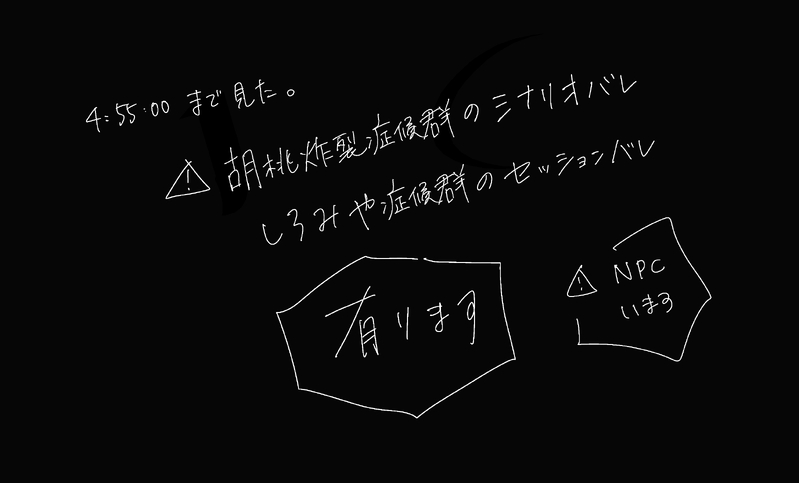 4:55:00 まで見た。
⚠ 胡桃炸裂症候群のシナリオバレ
しろみや症候群のセッションバレ
有ります
⚠ NPC
います